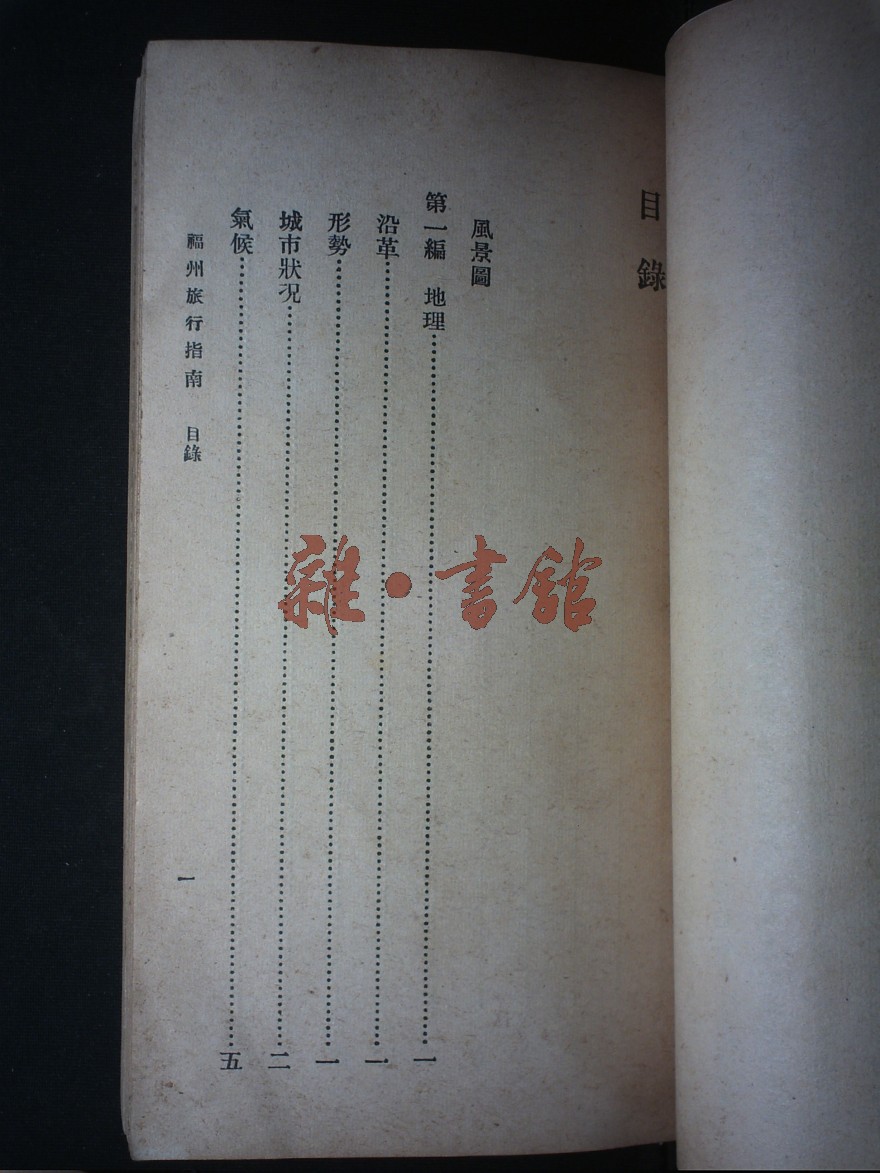 目錄
風景圖
第一編 地理……一
沿革……一
形勢……一
城市狀况……二
氣候……五
福州旅行指南 目錄 一
雜·書館